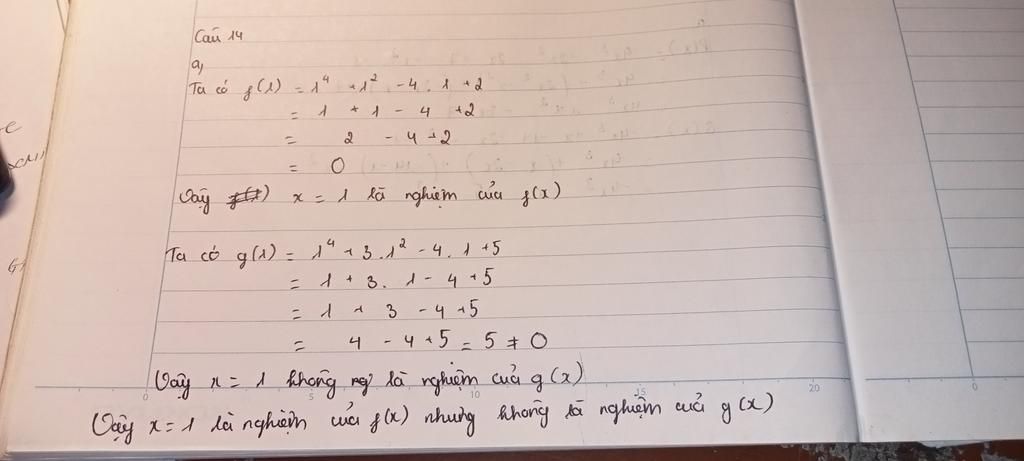 Câu 14
a,
Ta có f(1) = 1⁴ + 1² - 4 . 1 + 2
= 1 + 1 - 4 + 2
= 2 - 4 + 2
= 0
Vậy x = 1 là nghiệm của f(x)
Ta có g(1) = 1⁴ + 3 . 1² - 4 . 1 + 5
= 1 + 3 . 1 - 4 + 5
= 1 + 3 - 4 + 5
= 4 - 4 + 5 = 5 ≠ 0
Vậy x = 1 không là nghiệm của g(x)
0 5 10 15 20 0
Vậy x = 1 là nghiệm của f(x) nhưng không là nghiệm của g(x)